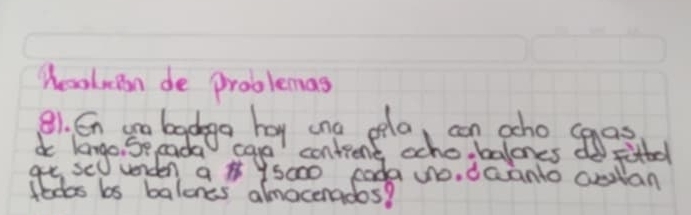 Resolución de problemas
8). En una bodega hay una pila, con ocho cajas
de largo. Si cada caja contiene ocho balones de fútbol
que se venden a $ 45000 cada uno. ¿cuánto cuestan
todos los balones almacenados?